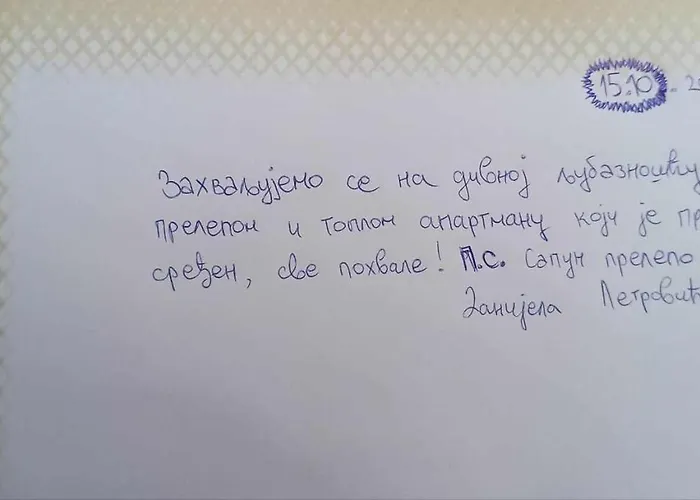 15.10.
Захваљујемо се на дивној љубазношћу
прелепом и топлом апартману који је
сређен, све похвале! П.С. Сапун прелепо
Данијела Петровић